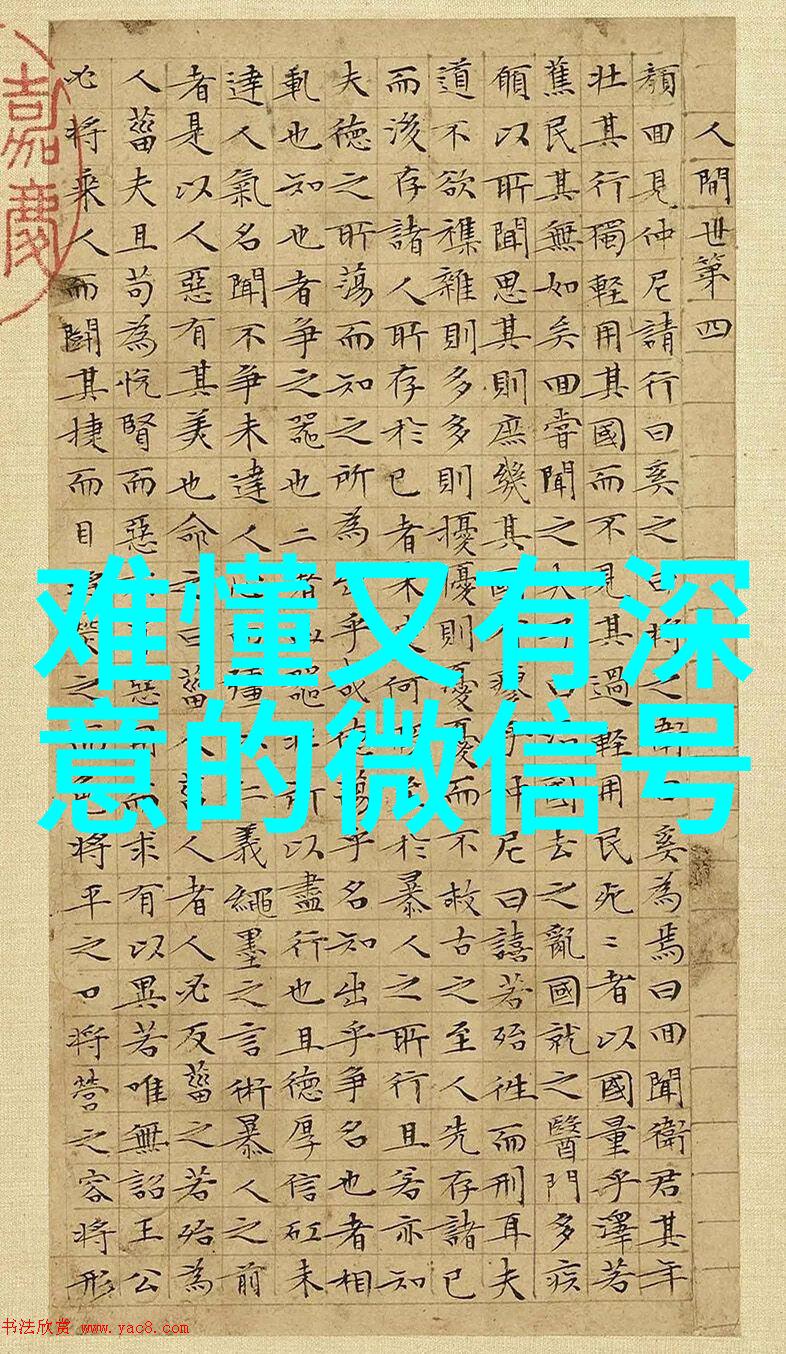 人間世第四
顏回見仲尼請行曰奚之曰將之衛曰奚為焉曰回聞衛君其年
壯其行獨輕用其國而不見其過輕用民死〻者以國量乎澤若
蕉民其無如矣回嘗聞之夫子曰治國去之亂國就之醫門多疾
願以所聞思其則庶幾其國瘳乎仲尼曰譆若殆往而刑耳夫
道不欲襍雜則多多則擾擾則憂憂而不救古之至人先存諸已
而後存諸人所存於已者未定何於暴人之所行且若亦知
夫德之所蕩而知之所為出乎哉德蕩乎名知出乎爭名也者相
軋也知也者爭之器也二者凶器非所以盡行也且德厚信矼未
達人氣名聞不爭未達人心而彊以仁義繩墨之言術暴人之前
者是以人惡有其美也命之曰菑人菑人者人必反菑之若殆為
人菑夫且苟為悅賢而惡不肖惡用而求有以異若唯無詔王公
必將乘人而鬭其捷而目將熒之而色將平之口將營之容將形
嘉慶
难懂又有深
意的微信号
书法欣赏 www.yac8.com